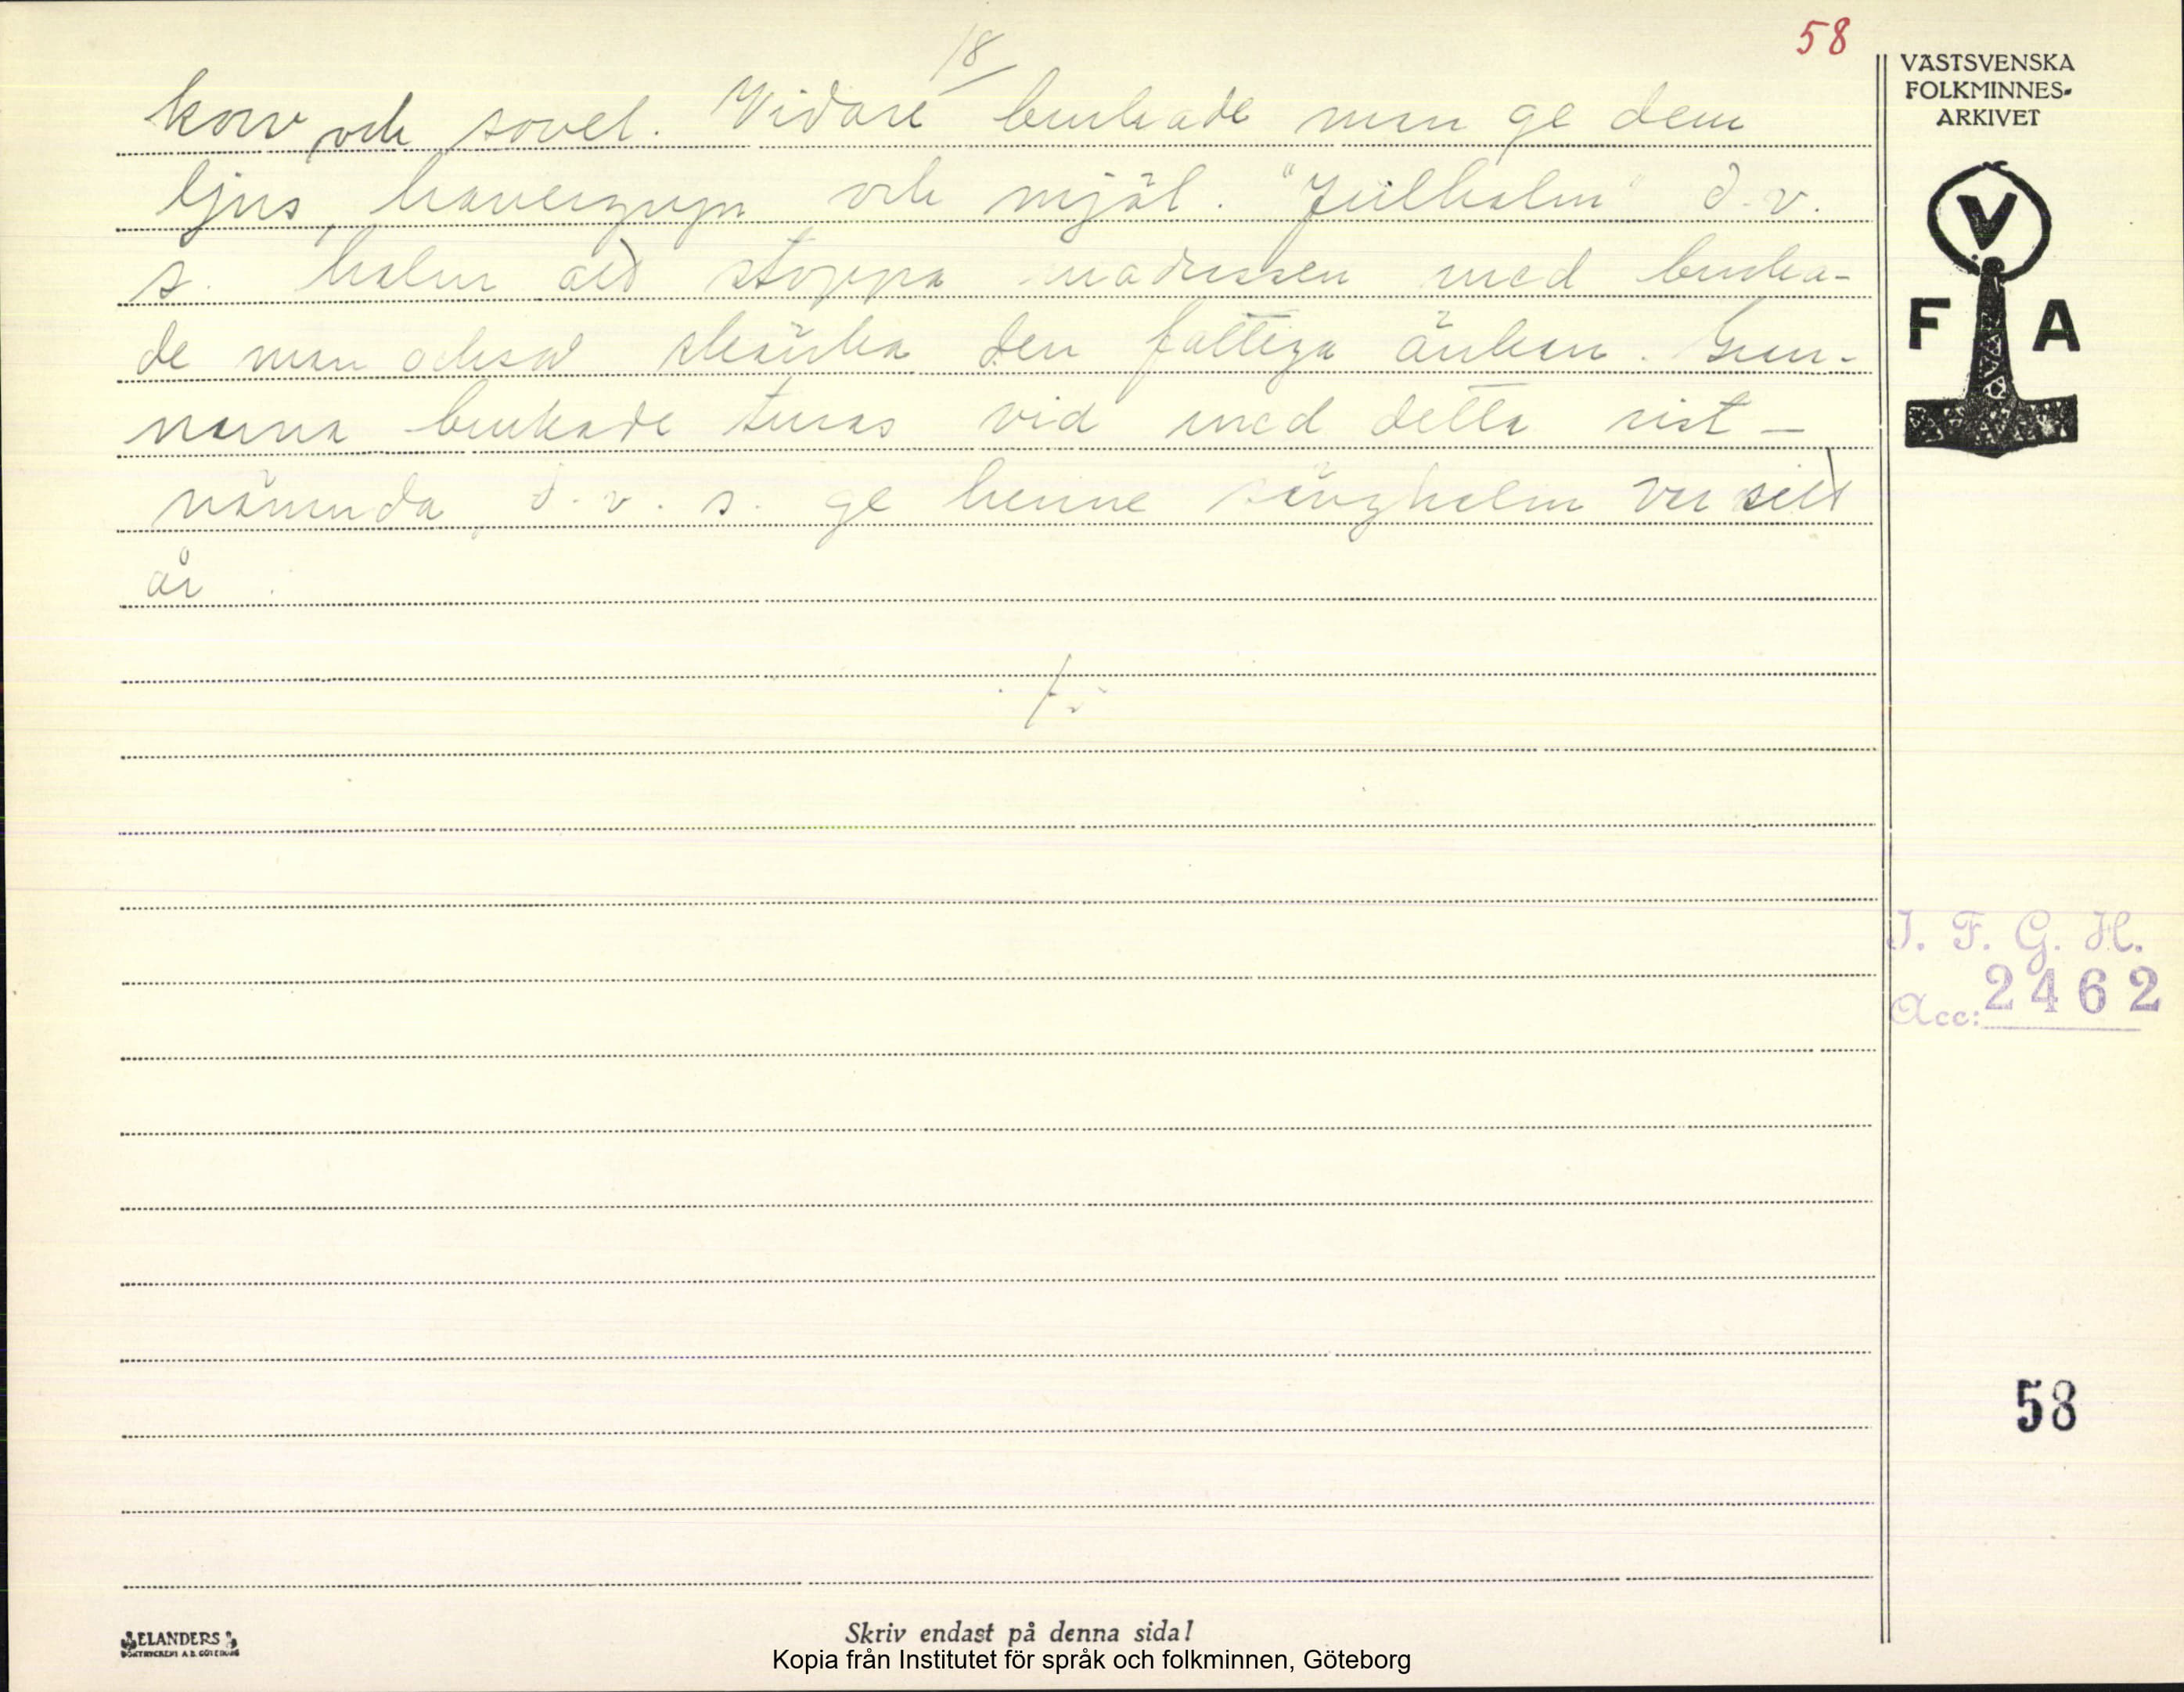 18
58
korv och sovel. Vidare brukade man ge dem
ljus, havregryn och mjöl. "Julhalm" d.v.
s. halm att stoppa madrassen med bruka-
de man också skänka den fattiga änkan. Gran-
narna brukade turas vid med detta sist-
nämnda, d.v.s. ge henne sänghalm var sitt
år.
VÄSTSVENSKA
FOLKMINNES-
ARKIVET
V
F A
I. F. G. H.
Acc: 2462
58
ELANDERS
BOKTRYCKERI A.B. GÖTEBORG
Skriv endast på denna sida!
Kopia från Institutet för språk och folkminnen, Göteborg